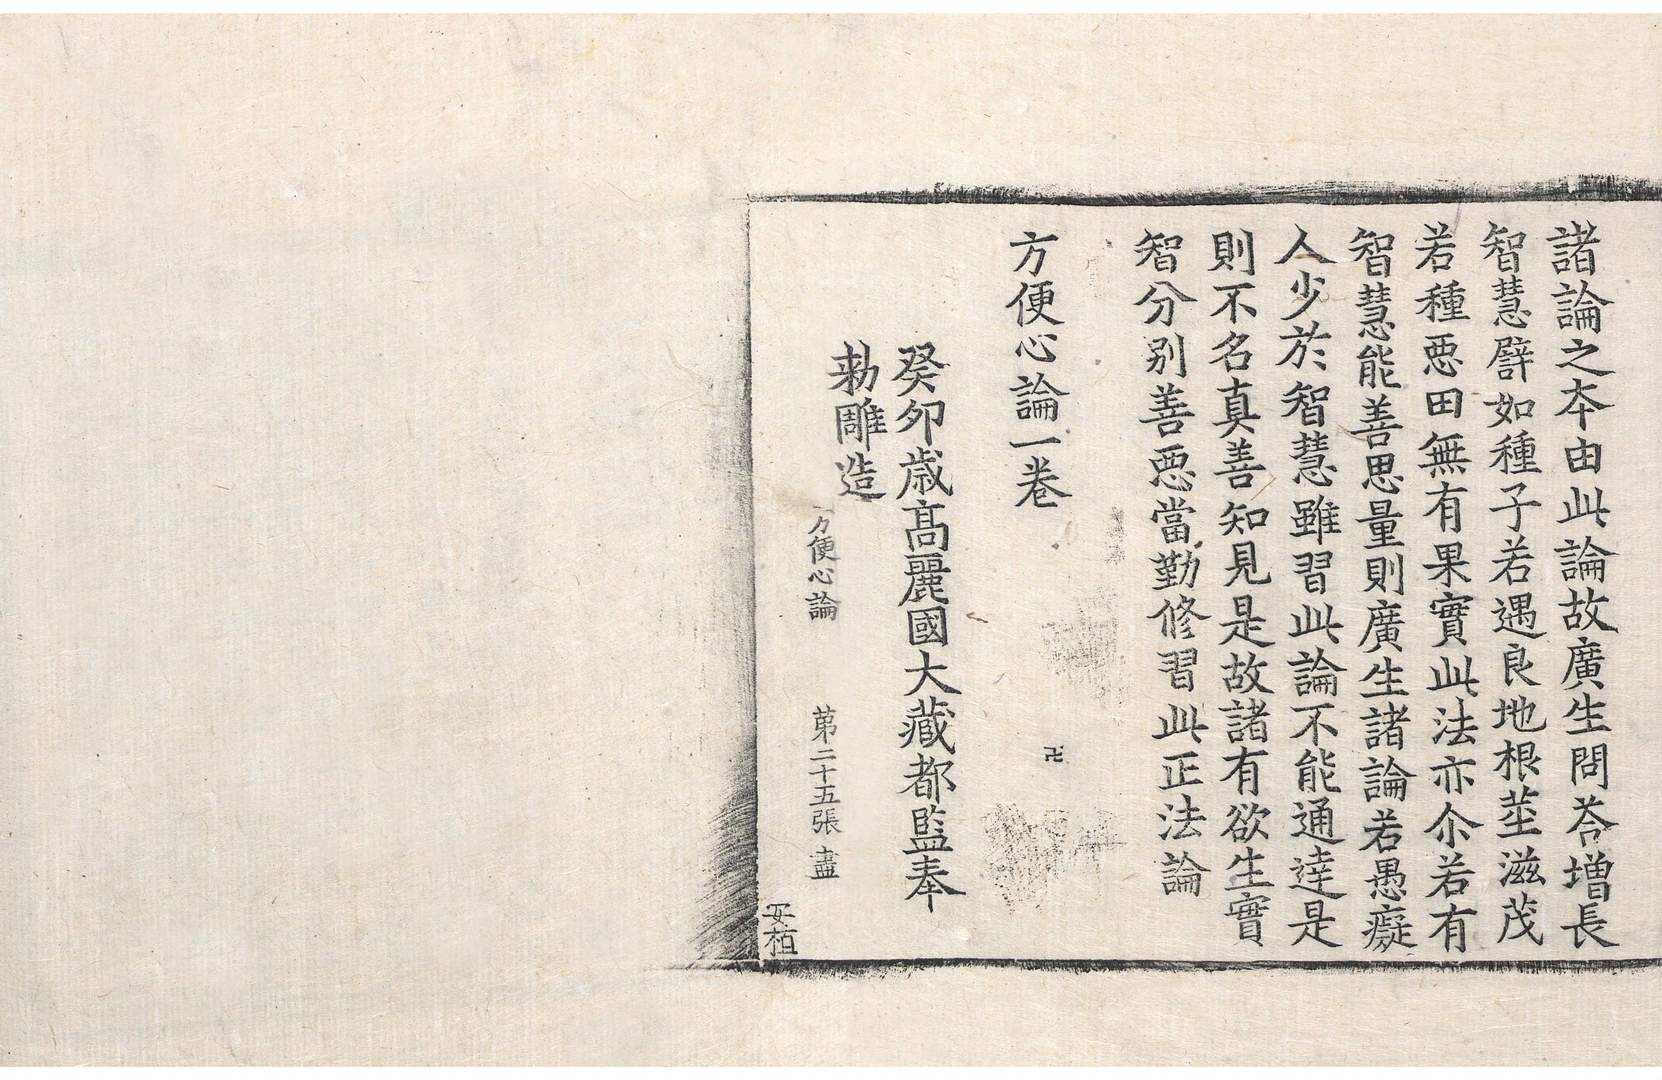 諸論之夲由此論故廣生問荅增長
智慧譬如種子若遇良地根莖滋茂
若種惡田無有果實此法亦尒若有
智慧能善思量則廣生諸論若愚癡
人少於智慧雖習此論不能通達是
則不名真善知見是故諸有欲生實
智分別善惡當勤修習此正法論
方便心論一卷
卍
癸卯歲高麗國大藏都監奉
勑雕造
方便心論 第二十五張 盡